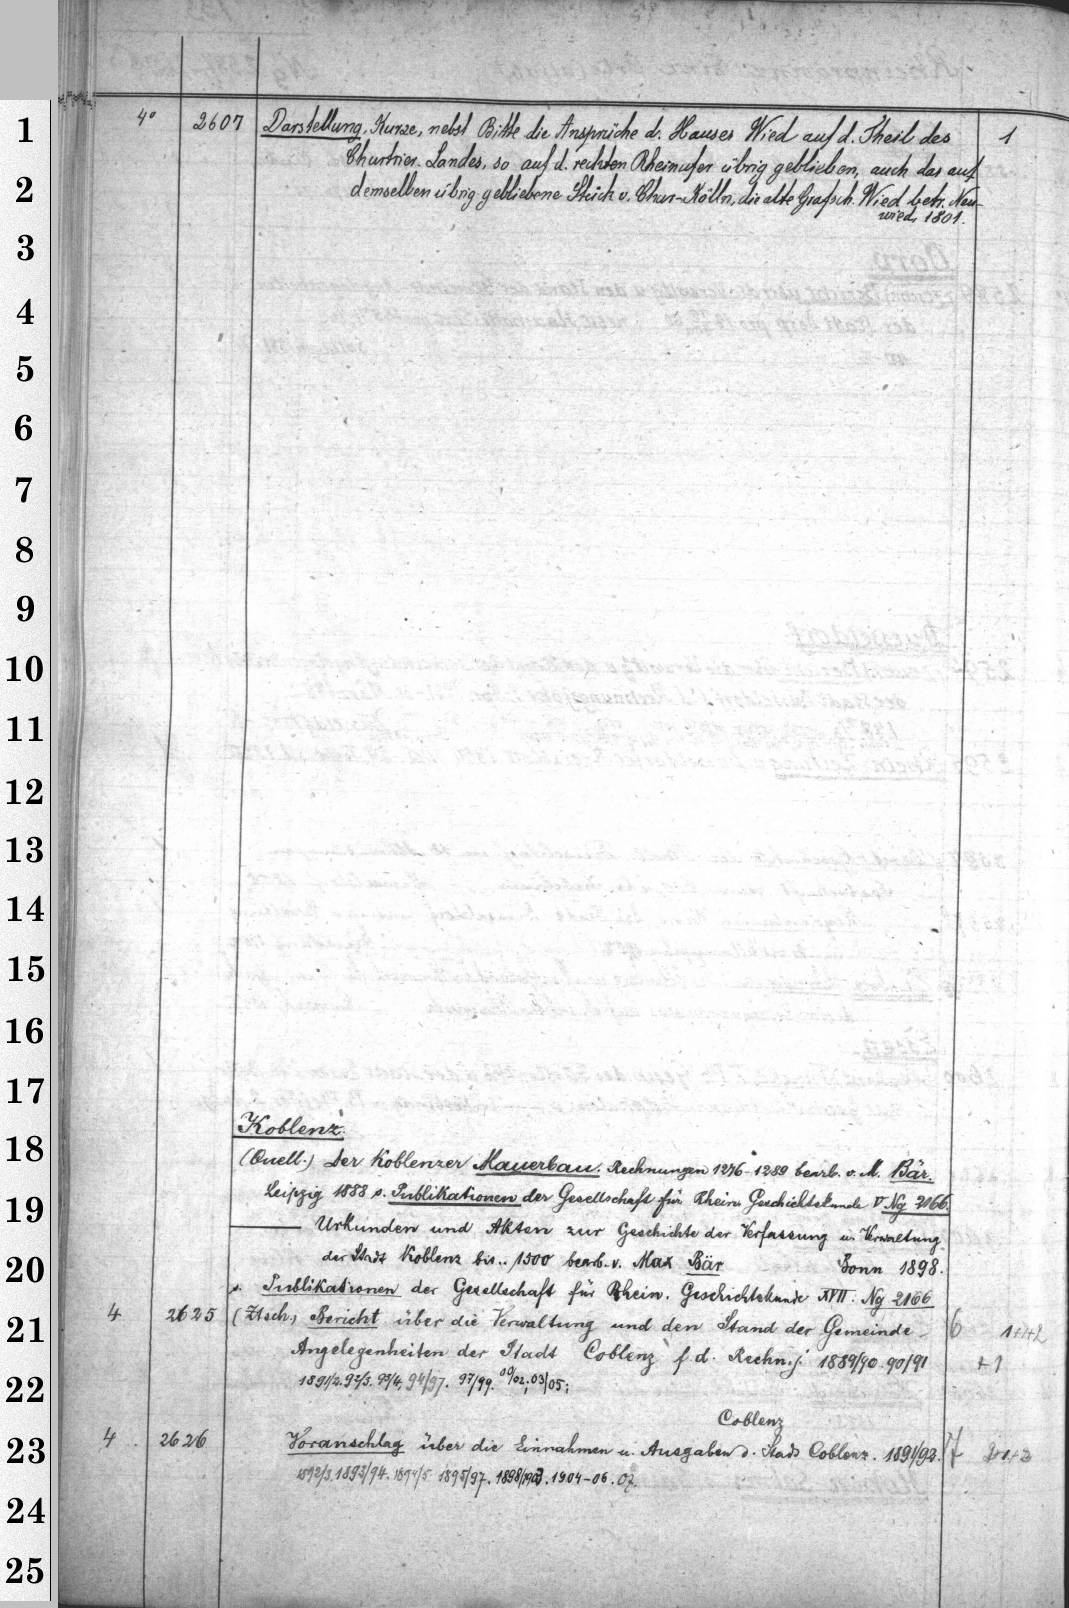 1
2
3
4
5
6
7
8
9
10
11
12
13
14
15
16
17
18
19
20
21
22
23
24
25
4° 2607 Darstellung, Kurze, nebst Bitte die Ansprüche d. Hauses Wied auf d. Theil des 1
Churtrier. Landes, so auf d. rechten Rheinufer übrig geblieben, auch das auf
demselben übrig gebliebene Stück v. Chur-Kölln, die alte Grafsch. Wied betr. Neu-
wied, 1801.
Koblenz.
(Quell.) Der Koblenzer Mauerbau. Rechnungen 1276-1289 bearb. v. M. Bär.
Leipzig 1888 s. Publikationen der Gesellschaft für Rhein. Geschichtskunde V. Ng 2166.
Urkunden und Akten zur Geschichte der Verfassung u. Verwaltung
der Stadt Koblenz bis .. 1500 bearb. v. Max Bär Bonn 1898.
s. Publikationen der Gesellschaft für Rhein. Geschichtskunde XVII. Ng 2166
4 2625 (Ztsch.) Bericht über die Verwaltung und den Stand der Gemeinde- 6 1+1+2
Angelegenheiten der Stadt Coblenz f. d. Rechn.j. 1889/90. 90/91 +1
1891/2. 92/3. 93/4, 94/97. 97/99. 00/02; 03/05;
Coblenz
4 2626 Voranschlag über die Einnahmen u. Ausgaben d. Stadt Coblenz. 1891/92. 7
1892/3. 1893/94. 1894/5. 1895/97. 1898/1903. 1904-06. 07.